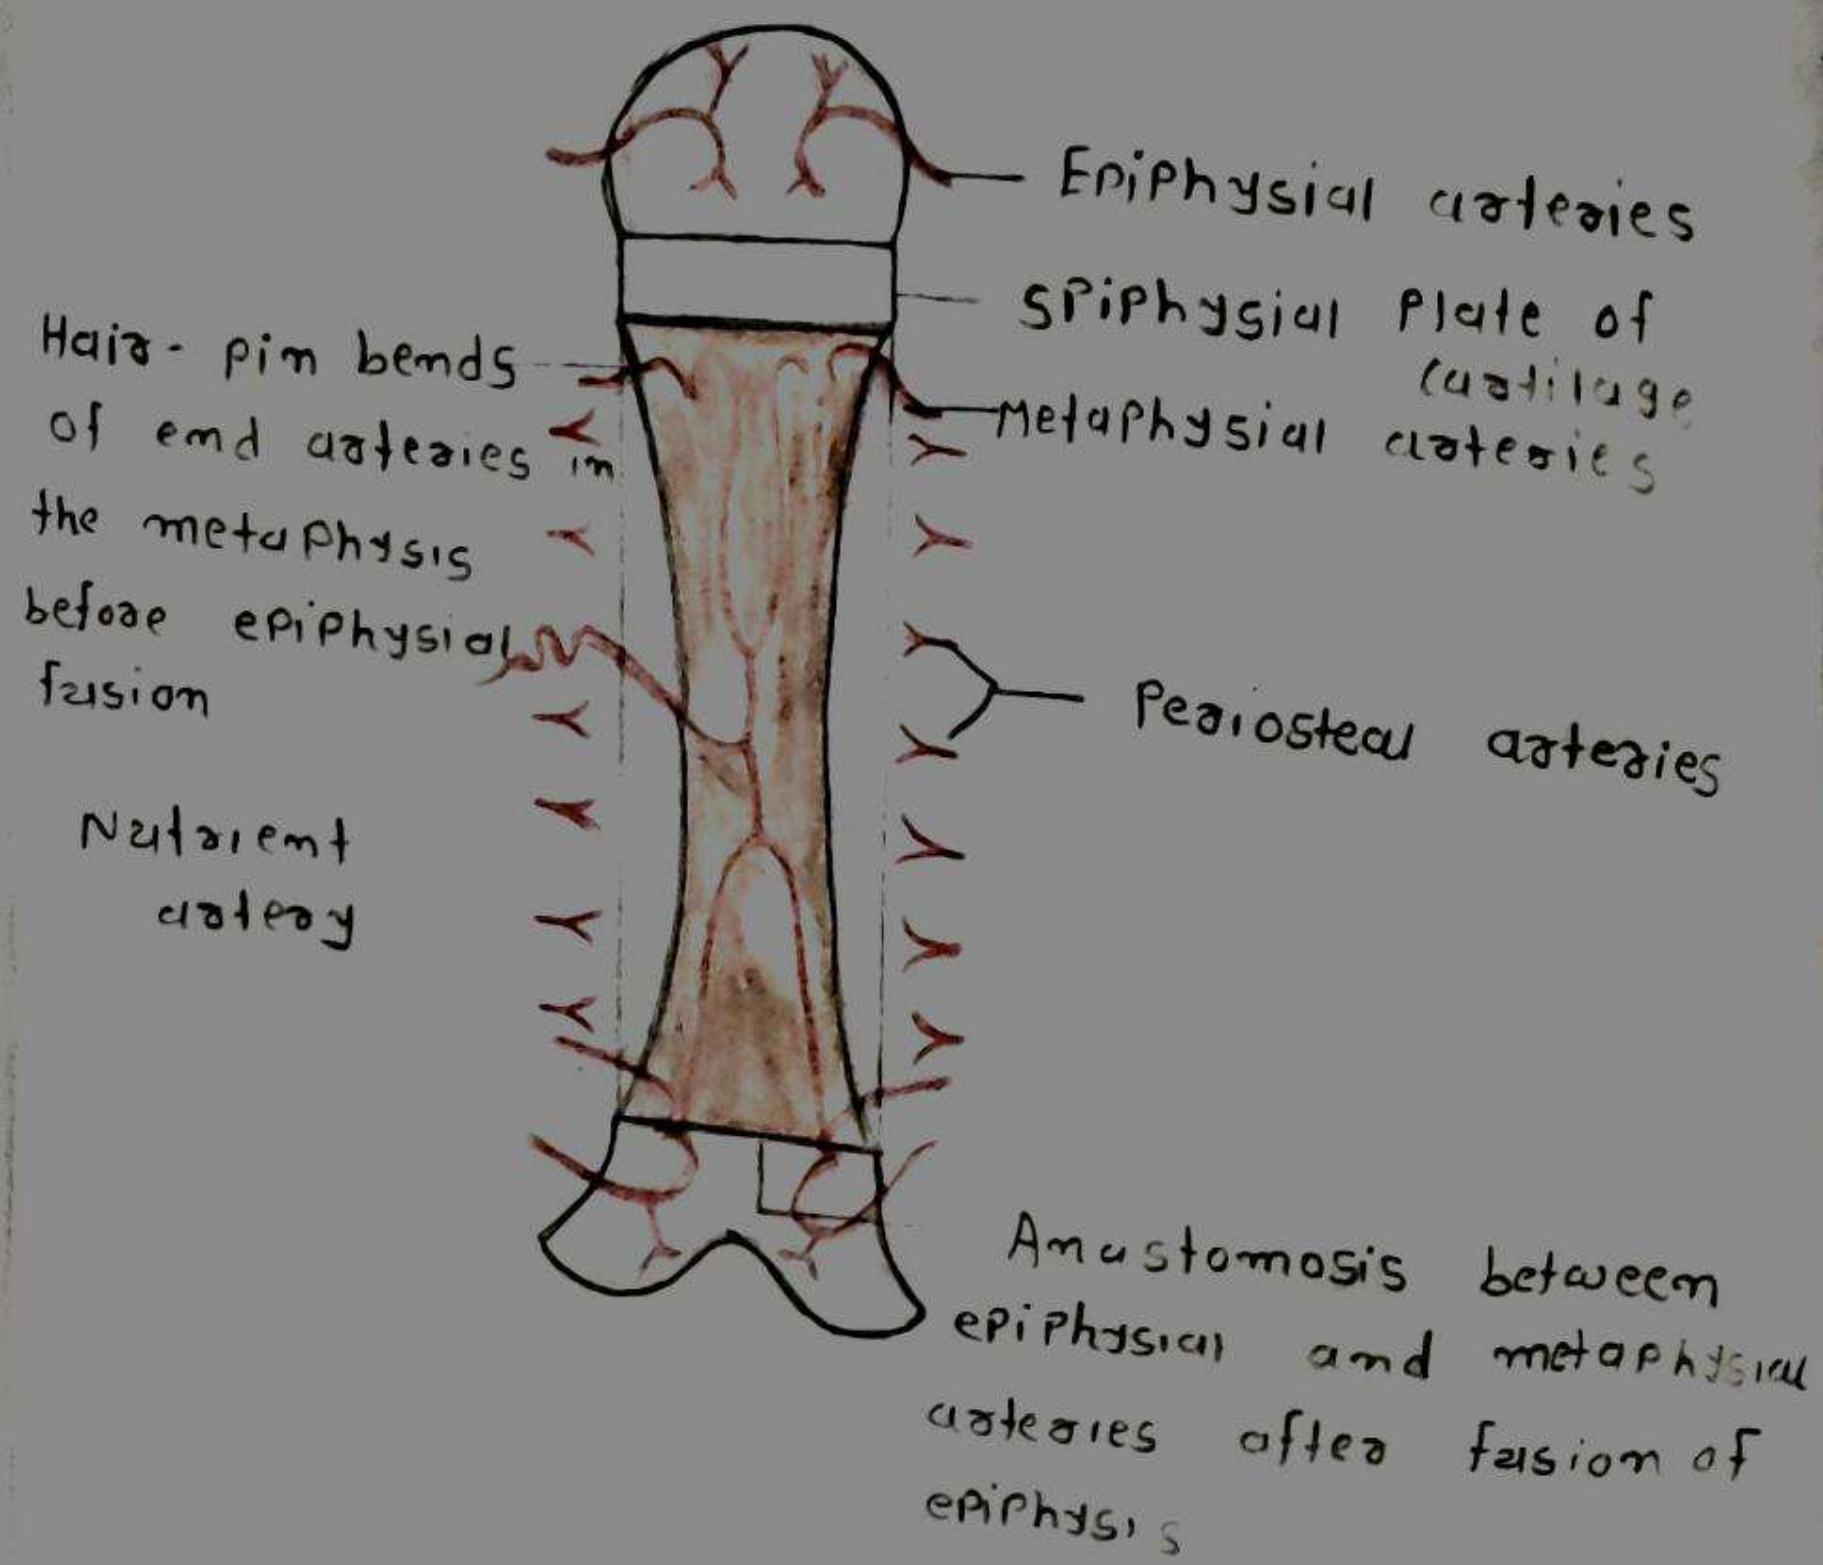 Epiphysial arteries
Spiphysial Plate of
Cartilage
Metaphysial arteries
Hair-pin bends
of end arteries in
the metaphysis
before epiphysial
fusion
Periosteal arteries
Nutrient
artery
Anastomosis between
epiphysial and metaphysial
arteries after fusion of
epiphysis